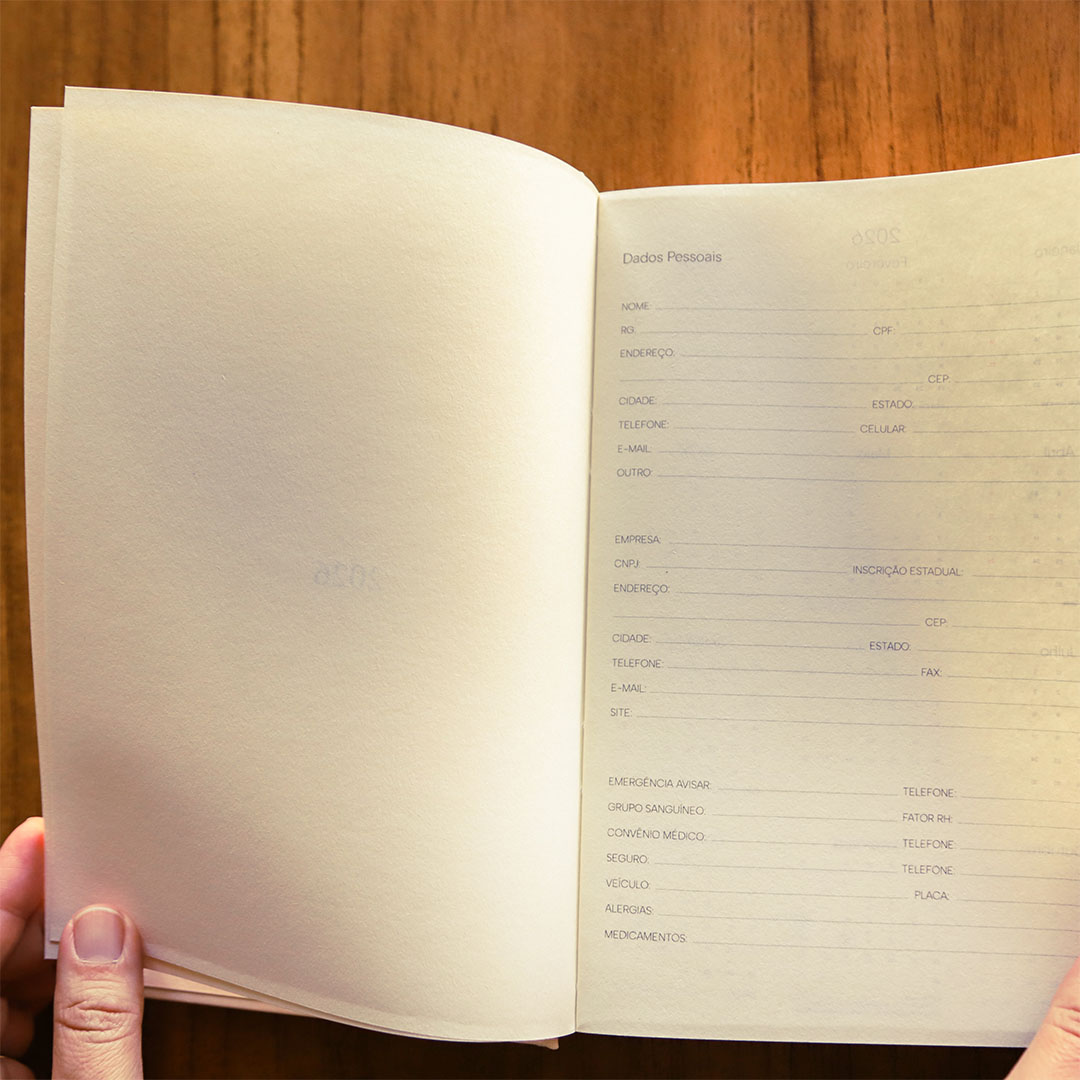 2026
2026
Dados Pessoais
Fevereiro
NOME:
RG: CPF:
ENDEREÇO:
CEP:
CIDADE: ESTADO:
TELEFONE: CELULAR:
E-MAIL:
Abril
Maio
OUTRO:
EMPRESA:
CNPJ: INSCRIÇÃO ESTADUAL:
ENDEREÇO:
CEP:
CIDADE: ESTADO:
Julho
TELEFONE: FAX:
E-MAIL:
SITE:
EMERGÊNCIA AVISAR: TELEFONE:
GRUPO SANGUÍNEO: FATOR RH:
CONVÊNIO MÉDICO: TELEFONE:
SEGURO: TELEFONE:
VEÍCULO: PLACA:
ALERGIAS:
MEDICAMENTOS: